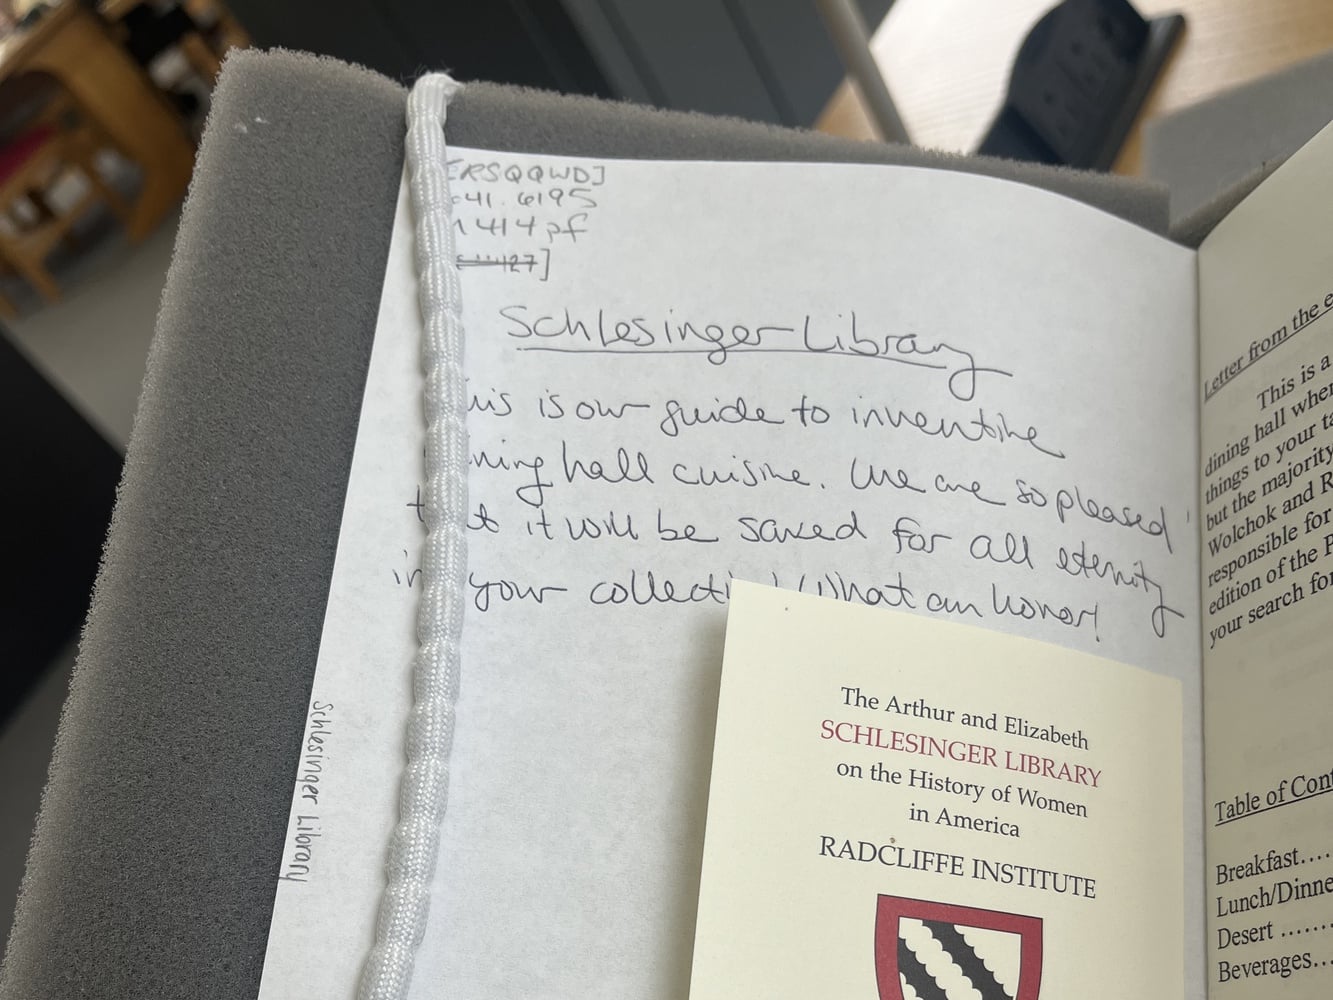 ERSQQWD]
641.6195
414pf
127]
Schlesinger Library
This is our guide to inventive
dining hall cuisine. We are so pleased
that it will be saved for all eternity
in your collection! What an honor!
Schlesinger Library
The Arthur and Elizabeth
SCHLESINGER LIBRARY
on the History of Women
in America
RADCLIFFE INSTITUTE
Letter from the e
This is a
dining hall wher
things to your ta
but the majority
Wolchok and R
responsible for
edition of the P
your search for
Table of Cont
Breakfast....
Lunch/Dinne
Desert .......
Beverages...